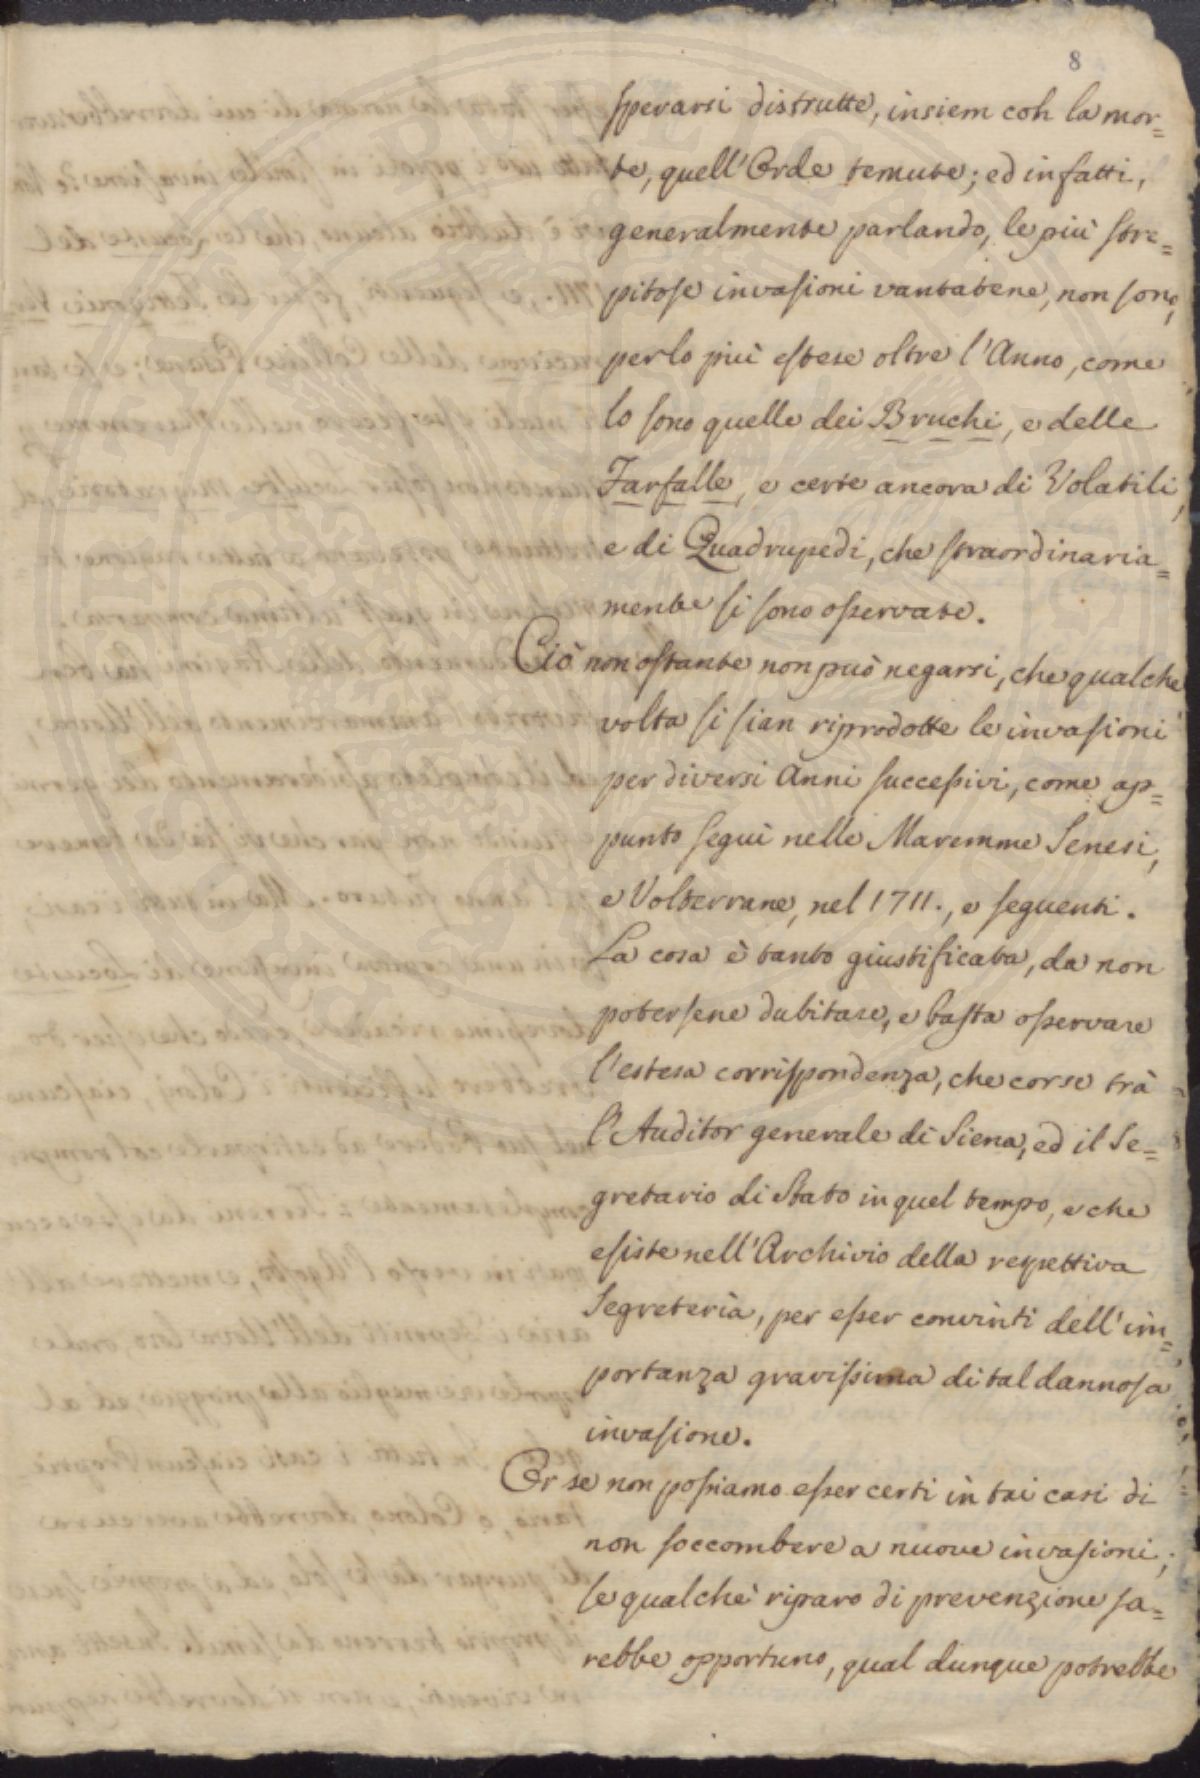 8
sperarsi distrutte, insiem coh la mor=
te, quell'Orde temute; ed infatti,
generalmente parlando, le più stre=
pitose invasioni vantatene, non sono,
per lo più estese oltre l'Anno, come
lo sono quelle dei Bruchi, e delle
Farfalle, e certe ancora di Volatili,
e di Quadrupedi, che straordinaria=
mente si sono osservate.
Ciò non ostante non può negarsi, che qualche
volta si sian riprodotte le invasioni
per diversi Anni successivi, come ap=
punto seguì nelle Maremme Senesi,
e Volterrane, nel 1711., e seguenti.
La cosa è tanto giustificata, da non
potersene dubitare, e basta osservare
l'estesa corrispondenza, che corse trà
l'Auditor generale di Siena, ed il Se=
gretario di Stato in quel tempo, e che
esiste nell'Archivio della respettiva
Segreteria, per esser convinti dell'im=
portanza gravissima di tal dannosa
invasione.
Or se non possiamo esser certi in tai casi di
non soccombere a nuove invasioni;
se qualche riparo di prevenzione sa=
rebbe opportuno, qual dunque potrebbe